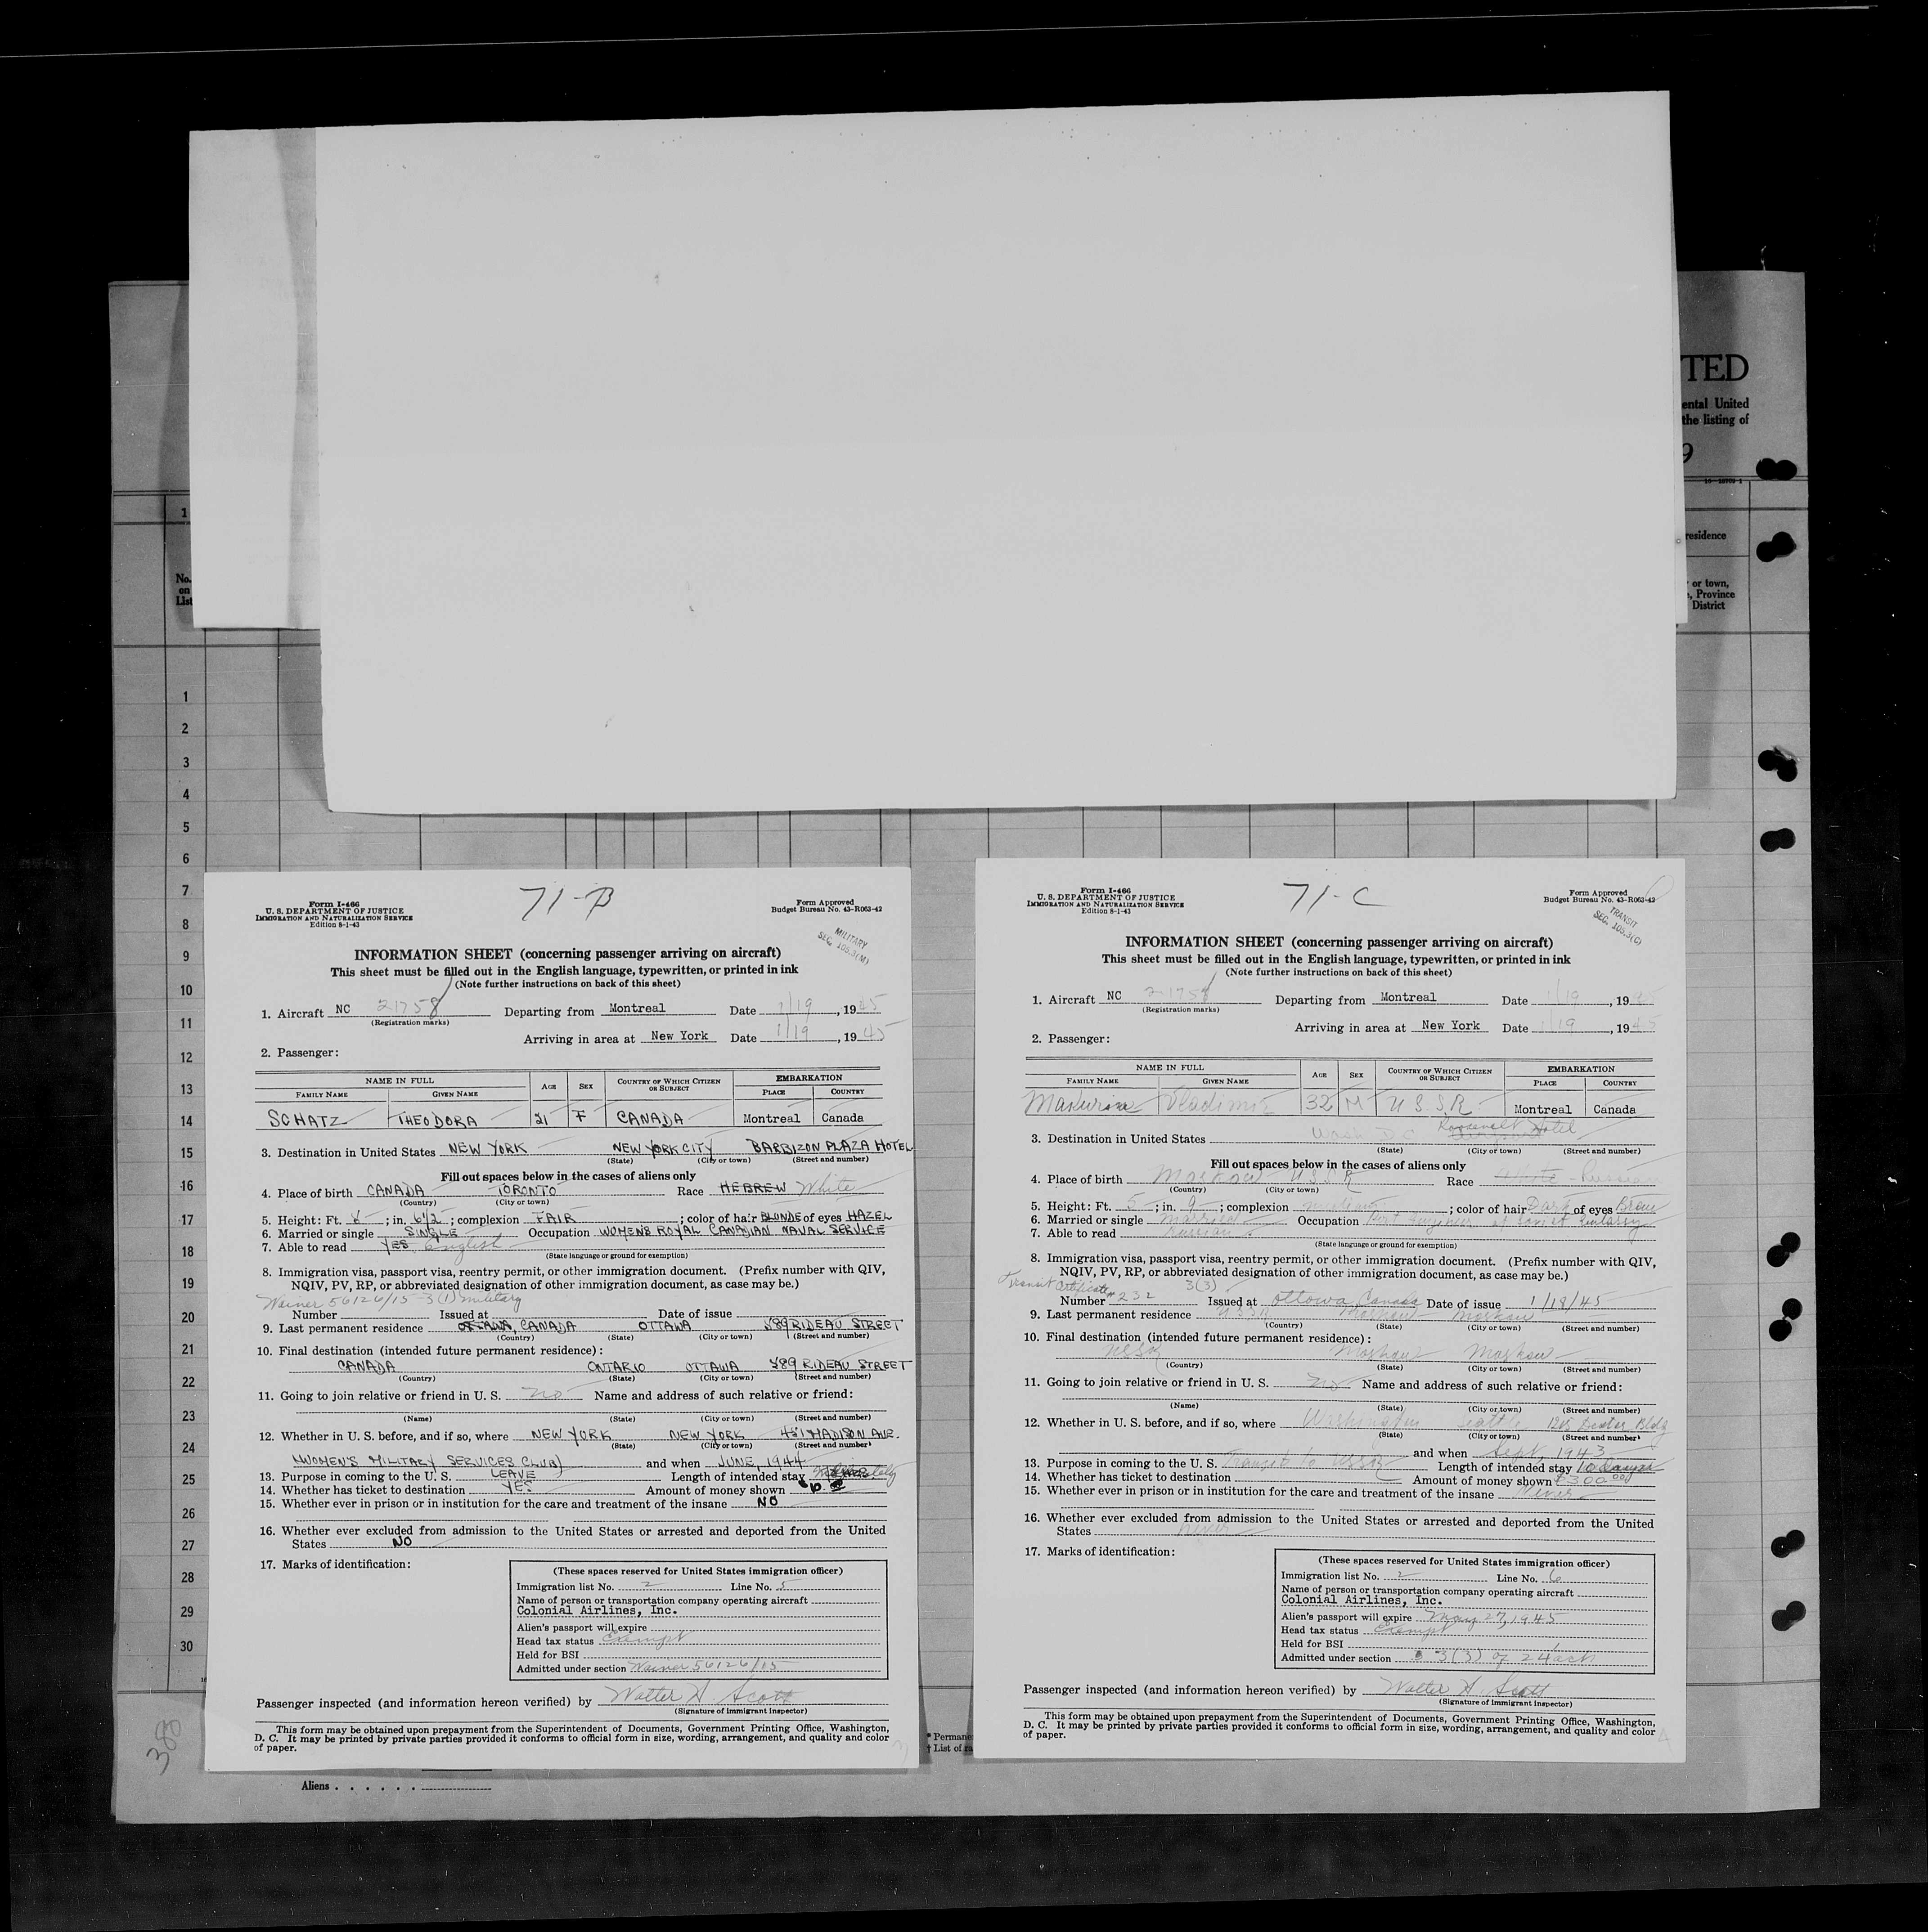 TED
ental United
the listing of
9
1
residence
No.
on
List
or town,
, Province
District
1
2
3
4
5
6
7
8
9
10
11
12
13
14
15
16
17
18
19
20
21
22
23
24
25
26
27
28
29
30
380
Aliens . . . . . .
* Permane
† List of ra
71-B
Form I-466
U. S. DEPARTMENT OF JUSTICE
IMMIGRATION AND NATURALIZATION SERVICE
Edition 8-1-43
Form Approved
Budget Bureau No. 43-R063-42
MILITARY
SEC. 105.3(M)
INFORMATION SHEET (concerning passenger arriving on aircraft)
This sheet must be filled out in the English language, typewritten, or printed in ink
(Note further instructions on back of this sheet)
1. Aircraft NC 21758 Departing from Montreal Date 1/19, 1945
(Registration marks)
Arriving in area at New York Date 1/19, 1945
2. Passenger:
NAME IN FULL AGE SEX COUNTRY OF WHICH CITIZEN OR SUBJECT EMBARKATION
FAMILY NAME GIVEN NAME PLACE COUNTRY
SCHATZ THEODORA 21 F CANADA Montreal Canada
3. Destination in United States NEW YORK NEW YORK CITY BARBIZON PLAZA HOTEL
(State) (City or town) (Street and number)
Fill out spaces below in the cases of aliens only
4. Place of birth CANADA TORONTO Race HEBREW White
(Country) (City or town)
5. Height: Ft. 5; in. 6 1/2; complexion FAIR; color of hair BLONDE of eyes HAZEL
6. Married or single SINGLE Occupation WOMEN'S ROYAL CANADIAN NAVAL SERVICE
7. Able to read YES English
(State language or ground for exemption)
8. Immigration visa, passport visa, reentry permit, or other immigration document. (Prefix number with QIV,
NQIV, PV, RP, or abbreviated designation of other immigration document, as case may be.)
Waiver 56126/15 3(1) military
Number Issued at Date of issue
9. Last permanent residence OTTAWA, CANADA OTTAWA 589 RIDEAU STREET
(Country) (State) (City or town) (Street and number)
10. Final destination (intended future permanent residence):
CANADA ONTARIO OTTAWA 589 RIDEAU STREET
(Country) (State) (City or town) (Street and number)
11. Going to join relative or friend in U. S. no Name and address of such relative or friend:
(Name) (State) (City or town) (Street and number)
12. Whether in U. S. before, and if so, where NEW YORK NEW YORK 451 MADISON AVE.
(State) (City or town) (Street and number)
(WOMEN'S MILITARY SERVICES CLUB) and when JUNE, 1944
13. Purpose in coming to the U. S. LEAVE Length of intended stay
14. Whether has ticket to destination YES Amount of money shown $10.00
15. Whether ever in prison or in institution for the care and treatment of the insane NO
16. Whether ever excluded from admission to the United States or arrested and deported from the United
States NO
17. Marks of identification:
(These spaces reserved for United States immigration officer)
Immigration list No. 2 Line No. 5
Name of person or transportation company operating aircraft
Colonial Airlines, Inc.
Alien's passport will expire
Head tax status Exempt
Held for BSI
Admitted under section Waiver 56126/15
Passenger inspected (and information hereon verified) by Walter H. Scott
(Signature of immigrant inspector)
This form may be obtained upon prepayment from the Superintendent of Documents, Government Printing Office, Washington,
D. C. It may be printed by private parties provided it conforms to official form in size, wording, arrangement, and quality and color
of paper.
71-C
Form I-466
U. S. DEPARTMENT OF JUSTICE
IMMIGRATION AND NATURALIZATION SERVICE
Edition 8-1-43
Form Approved
Budget Bureau No. 43-R063-42
TRANSIT
SEC. 105.3(C)
INFORMATION SHEET (concerning passenger arriving on aircraft)
This sheet must be filled out in the English language, typewritten, or printed in ink
(Note further instructions on back of this sheet)
1. Aircraft NC 21758 Departing from Montreal Date 1/19, 1945
(Registration marks)
Arriving in area at New York Date 1/19, 1945
2. Passenger:
NAME IN FULL AGE SEX COUNTRY OF WHICH CITIZEN OR SUBJECT EMBARKATION
FAMILY NAME GIVEN NAME PLACE COUNTRY
Vladimir 32 M U.S.S.R Montreal Canada
3. Destination in United States Wash D.C. Roosevelt Hotel
(State) (City or town) (Street and number)
Fill out spaces below in the cases of aliens only
4. Place of birth Moskow U.S.S.R Race White Russian
(Country) (City or town)
5. Height: Ft. 5; in. 9; complexion medium; color of hair Dark of eyes Brown
6. Married or single Married Occupation engineer at Soviet Embassy
7. Able to read Russian
(State language or ground for exemption)
8. Immigration visa, passport visa, reentry permit, or other immigration document. (Prefix number with QIV,
NQIV, PV, RP, or abbreviated designation of other immigration document, as case may be.)
Transit Certificate 3(3)
Number #232 Issued at Ottowa Canada Date of issue 1/18/45
9. Last permanent residence USSR Moskow Moskow
(Country) (State) (City or town) (Street and number)
10. Final destination (intended future permanent residence):
USSR Moskow Moskow
(Country) (State) (City or town) (Street and number)
11. Going to join relative or friend in U. S. no Name and address of such relative or friend:
(Name) (State) (City or town) (Street and number)
12. Whether in U. S. before, and if so, where Washington Seattle 1205 Dexter Bldg
(State) (City or town) (Street and number)
and when Sept, 1943
13. Purpose in coming to the U. S. Transit to USSR Length of intended stay 10 Days
14. Whether has ticket to destination Amount of money shown $300.00
15. Whether ever in prison or in institution for the care and treatment of the insane Never
16. Whether ever excluded from admission to the United States or arrested and deported from the United
States never
17. Marks of identification:
(These spaces reserved for United States immigration officer)
Immigration list No. 2 Line No. 6
Name of person or transportation company operating aircraft
Colonial Airlines, Inc.
Alien's passport will expire May 27, 1945
Head tax status Exempt
Held for BSI
Admitted under section 3(3) of 24 act
Passenger inspected (and information hereon verified) by Walter H. Scott
(Signature of immigrant inspector)
This form may be obtained upon prepayment from the Superintendent of Documents, Government Printing Office, Washington,
D. C. It may be printed by private parties provided it conforms to official form in size, wording, arrangement, and quality and color
of paper.